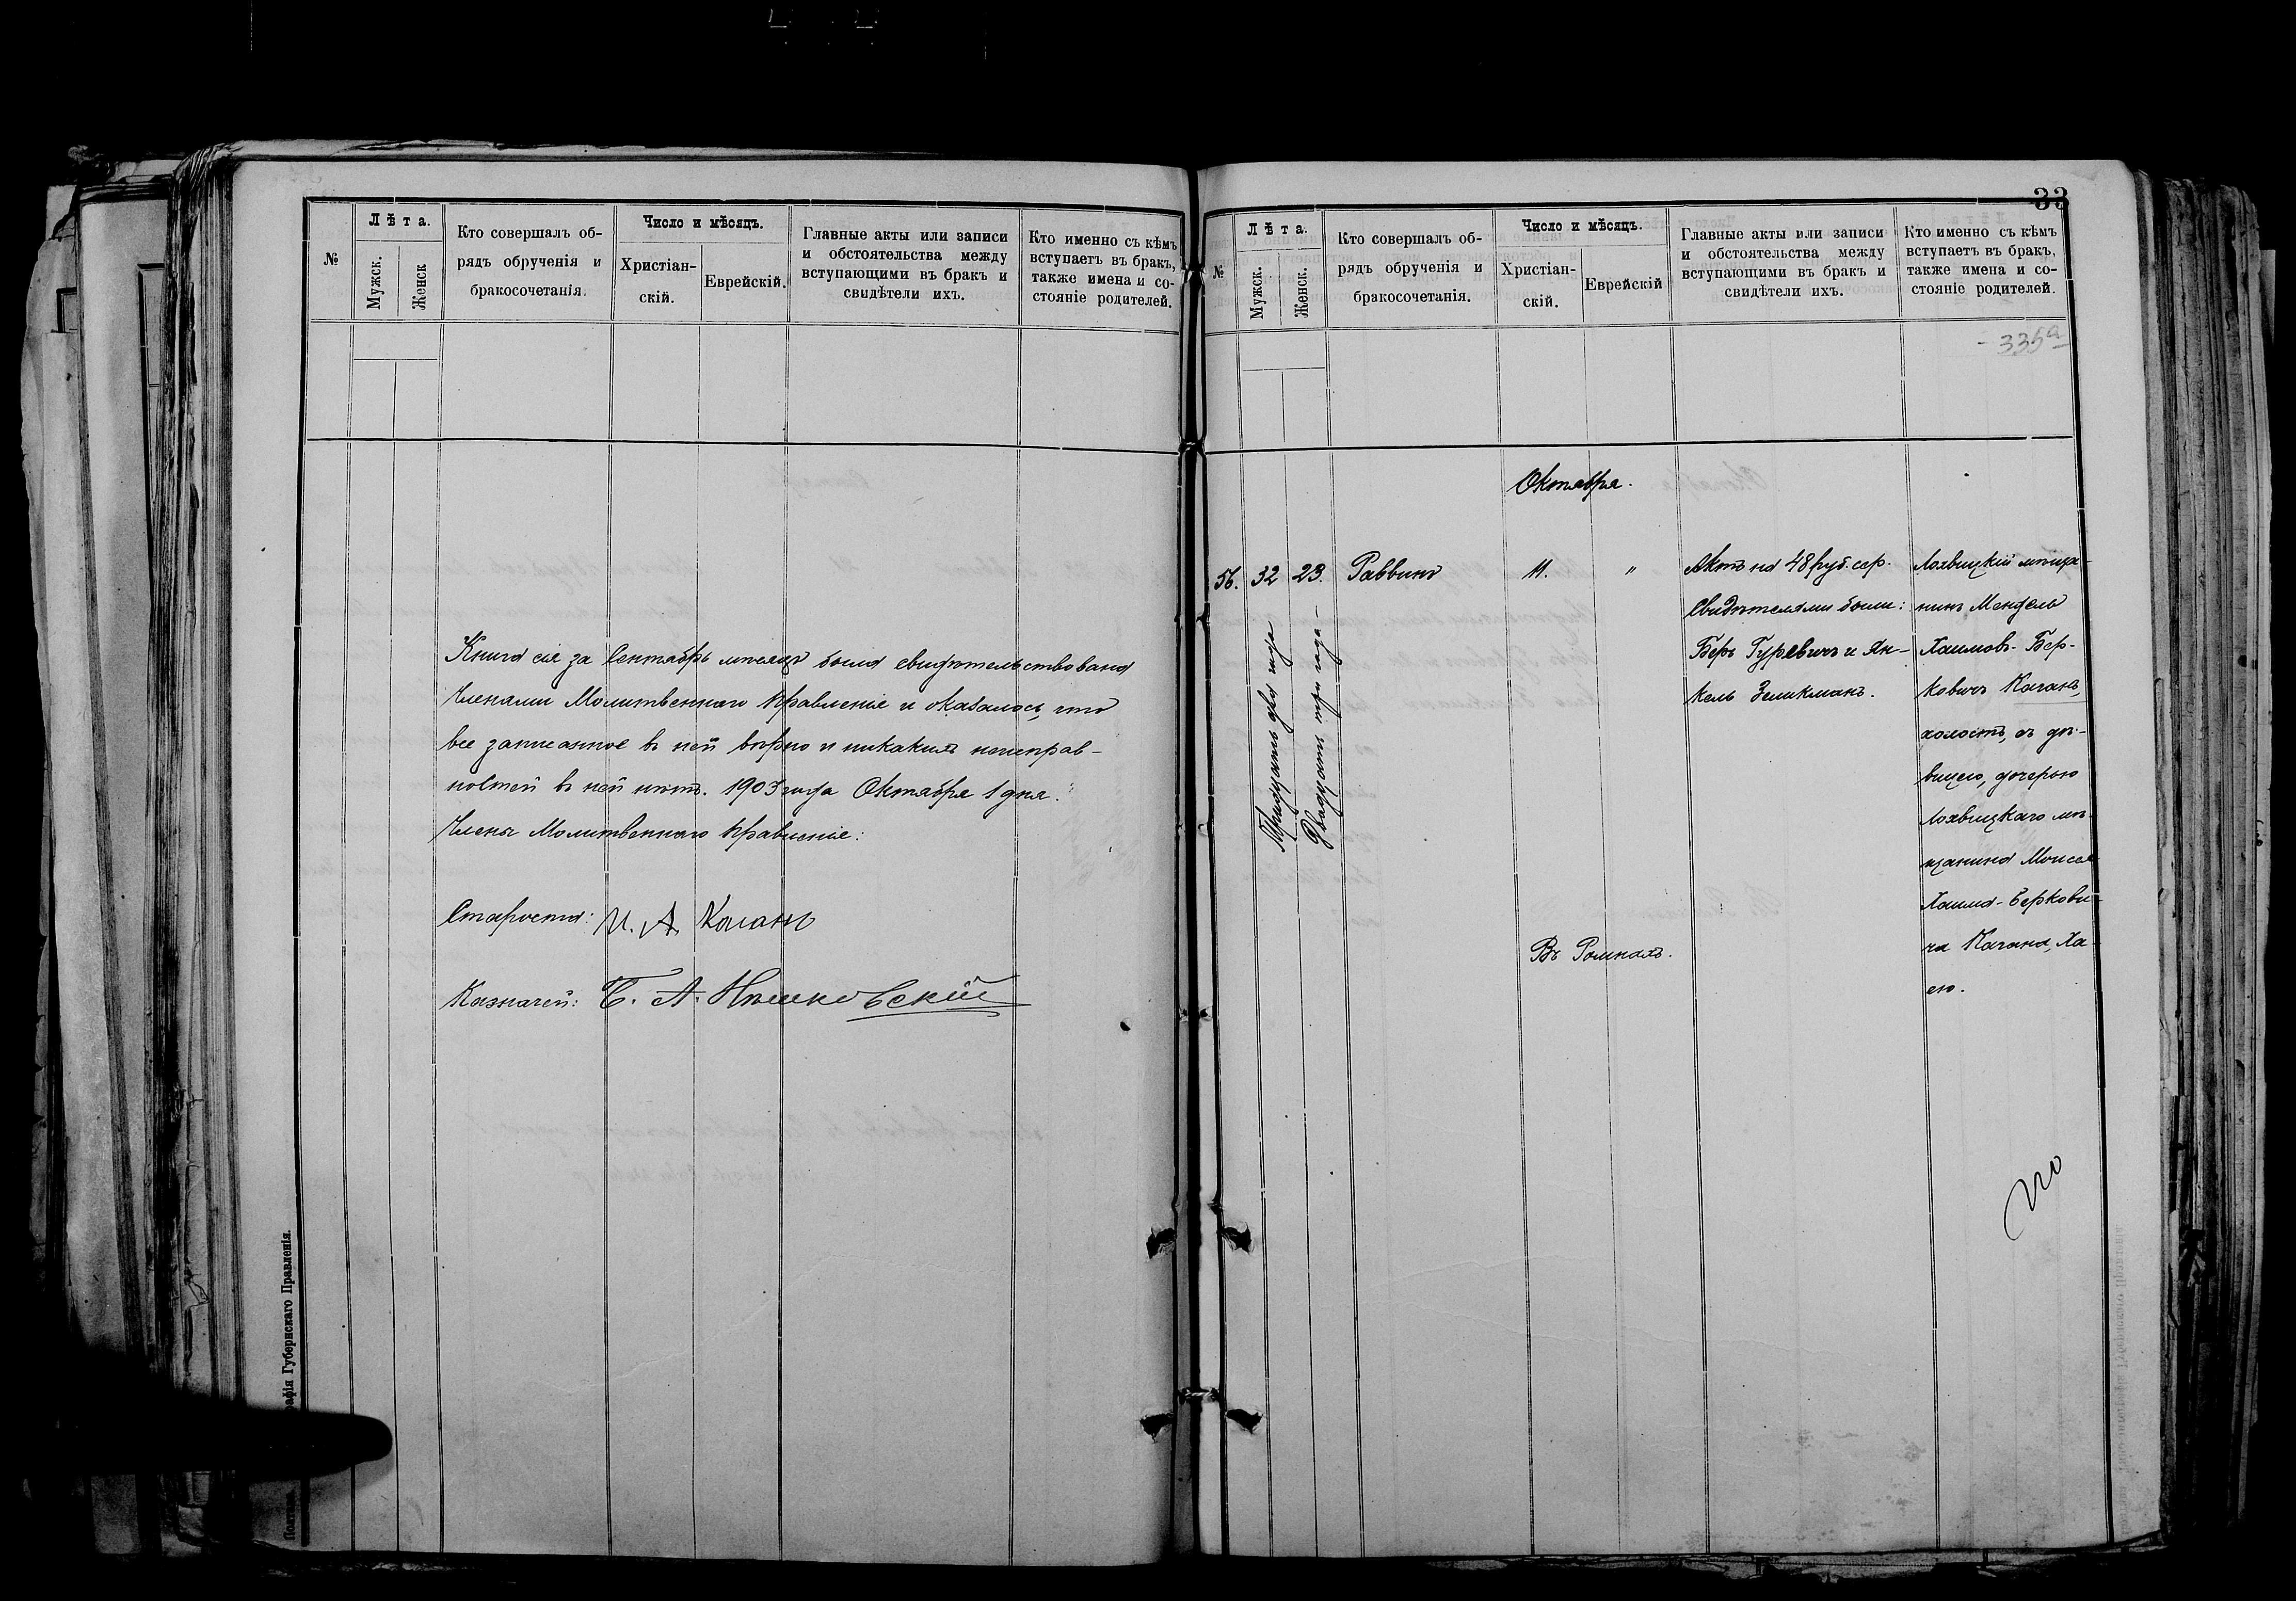 №
Лѣта.
Мужск.
Женск
Кто совершалъ об-
рядъ обрученія и
бракосочетанія.
Число и мѣсяцъ.
Христіан-
скій.
Еврейскій.
Главные акты или записи
и обстоятельства между
вступающими въ бракъ и
свидѣтели ихъ.
Кто именно съ кѣмъ
вступаетъ въ бракъ,
также имена и со-
стояніе родителей.
Книга сія за Сентябрь мѣсяцъ была свидѣтельствована
Членами Молитвеннаго Правленіе и оказалось, что
все записанное въ ней вѣрно и никакихъ неисправ-
ностей въ ней нѣтъ. 1903 года Октября 1 дня.
Члены Молитвеннаго Правленіе:
Староста: И. А. Каганъ
Казначей: Б. А.
Губернскаго Правленія.
33
№
Лѣта.
Мужск.
Женск.
Кто совершалъ об-
рядъ обрученія и
бракосочетанія.
Число и мѣсяцъ.
Христіан-
скій.
Еврейскій
Главные акты или записи
и обстоятельства между
вступающими въ бракъ и
свидѣтели ихъ.
Кто именно съ кѣмъ
вступаетъ въ бракъ,
также имена и со-
стояніе родителей.
335а
Октября.
56.
32
Тридцать два года
23.
Двадцать три года
Раввинъ
11.
"
Въ Ромнахъ.
Актъ на 48 руб. сер.
Свидѣтелями были:
Беръ Гуревичъ и Ян-
кель Зеликманъ.
Лохвицкій мѣща-
нинъ Мендель
Хаимовъ-Бер-
ковичъ Каганъ,
холостъ, съ дѣ-
вицею, дочерью
Лохвицкаго мѣ-
щанина Моисея
Хаима-Беркови-
ча Кагана, Ха-
ею.